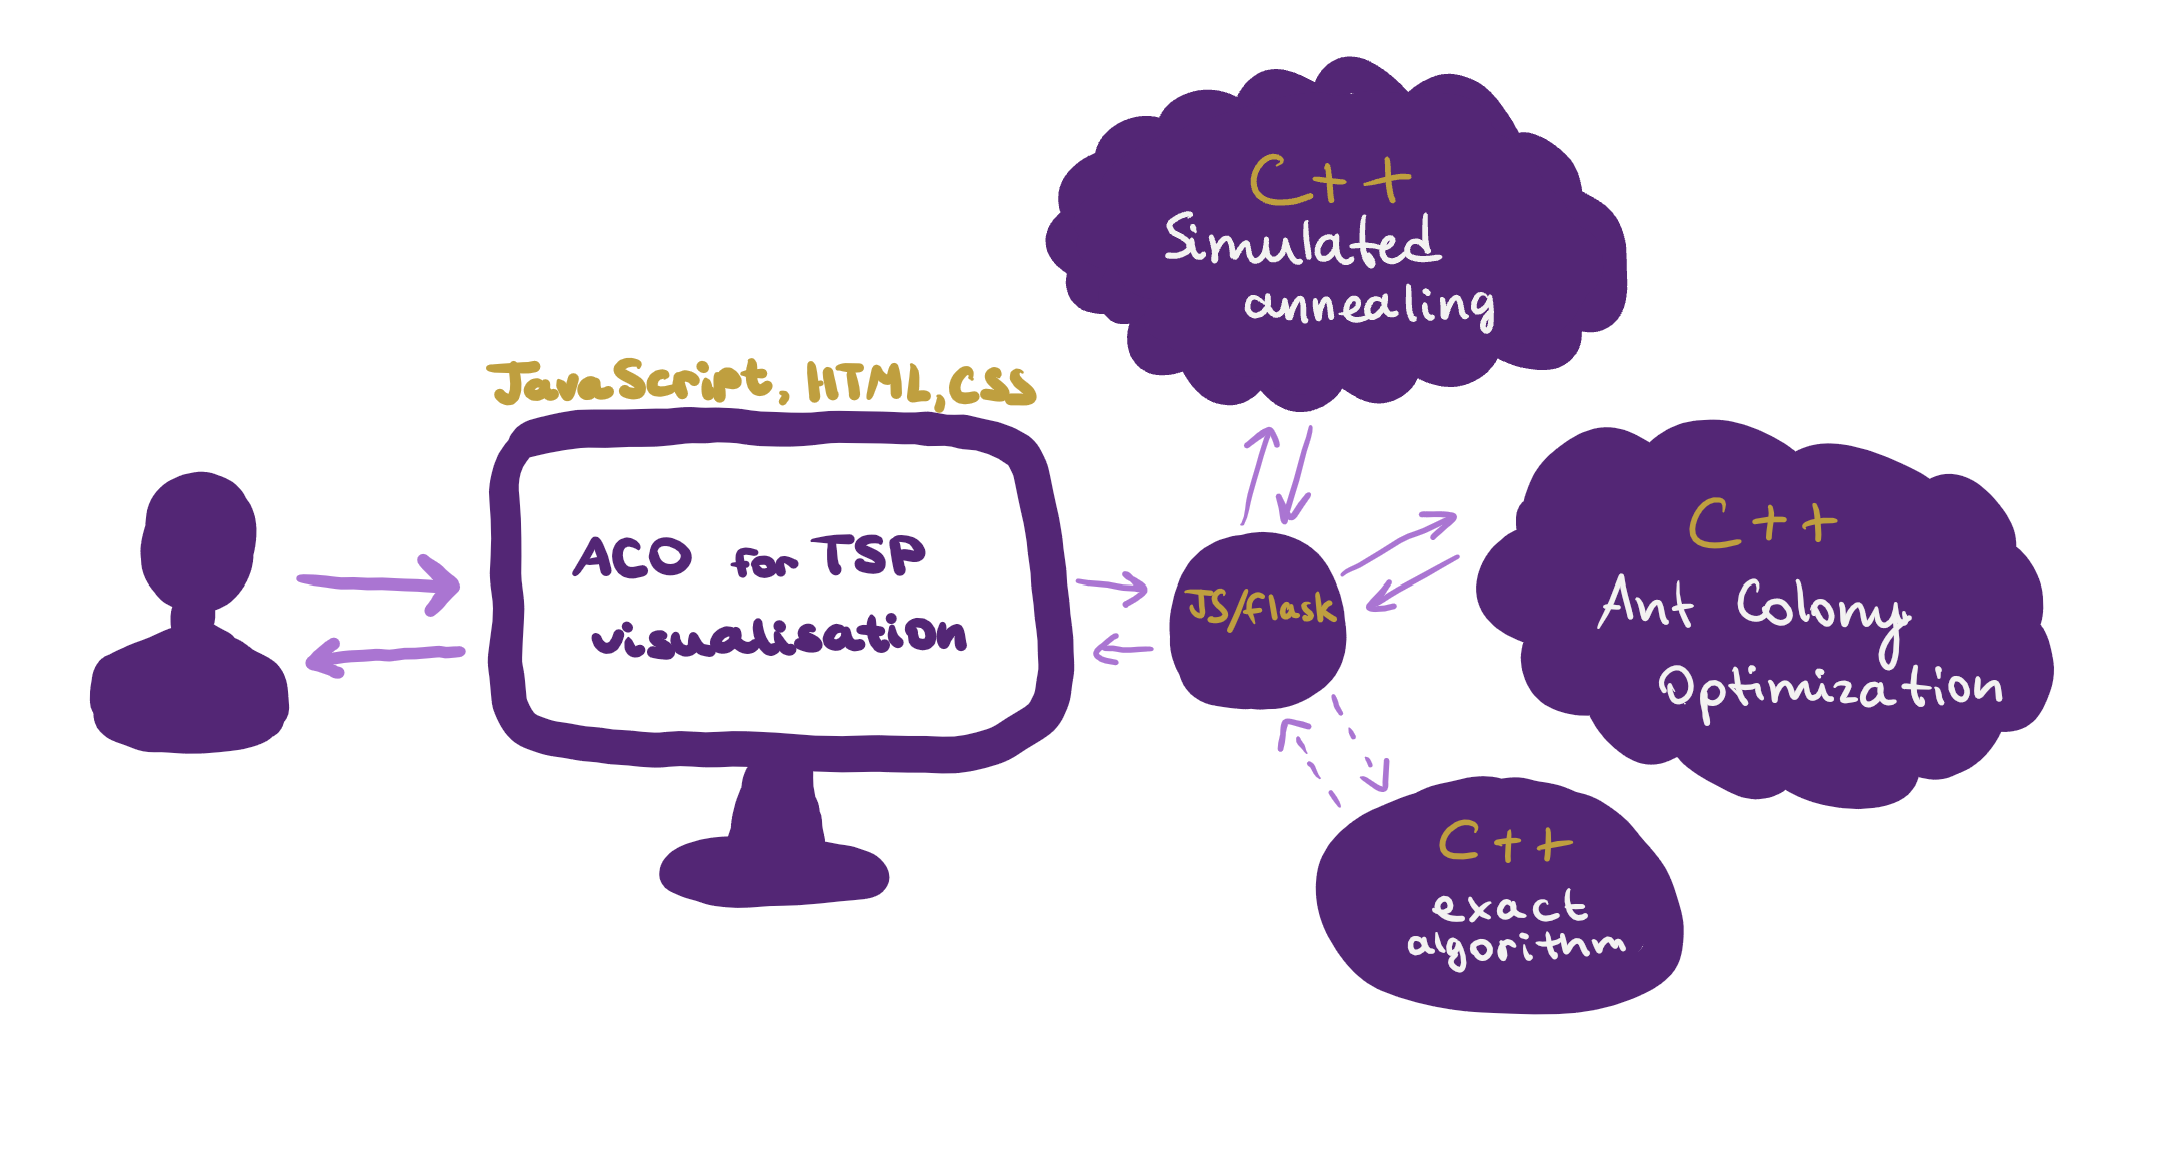 JavaScript, HTML, CSS
ACO for TSP
visualisation
JS/flask
C++
Simulated
annealing
C++
Ant Colony
Optimization
C++
exact
algorithm